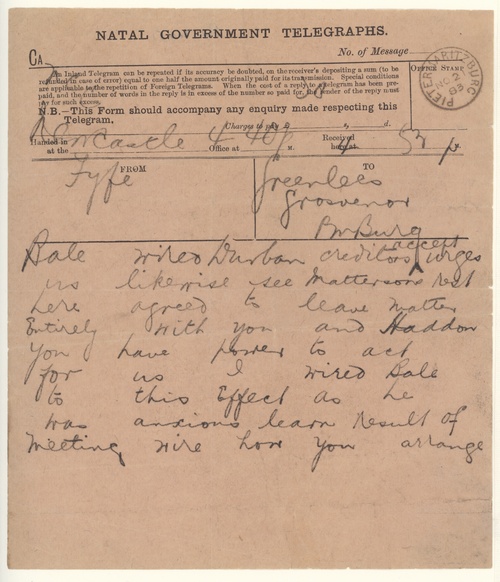 NATAL GOVERNMENT TELEGRAPHS.
CA
No. of Message
An Inland Telegram can be repeated if its accuracy be doubted, on the receiver's depositing a sum (to be
refunded in case of error) equal to one half the amount originally paid for its transmission. Special conditions
are applicable to the repetition of Foreign Telegrams. When the cost of a reply to a telegram has been pre-
paid, and the number of words in the reply is in excess of the number so paid for, the sender of the reply must
pay for such excess.
OFFICE STAMP
PIETERMARITZBURG
NO 2
83
N.B.—This Form should accompany any enquiry made respecting this
Telegram.
Charges to pay £ s. d.
Handed in at the Newcastle Office at 4 40 p M. Received here at 5 p
FROM
TO
Fyfe
Greenlees
Grosvenor
PmBurg
Bale wired Durban creditors accept urges
us likewise see Mattersons rest
here agreed to leave matter
Entirely with you and Haddon
You have power to act
for us I wired Bale
to this Effect as he
was anxious learn result of
Meeting wire how you arrange